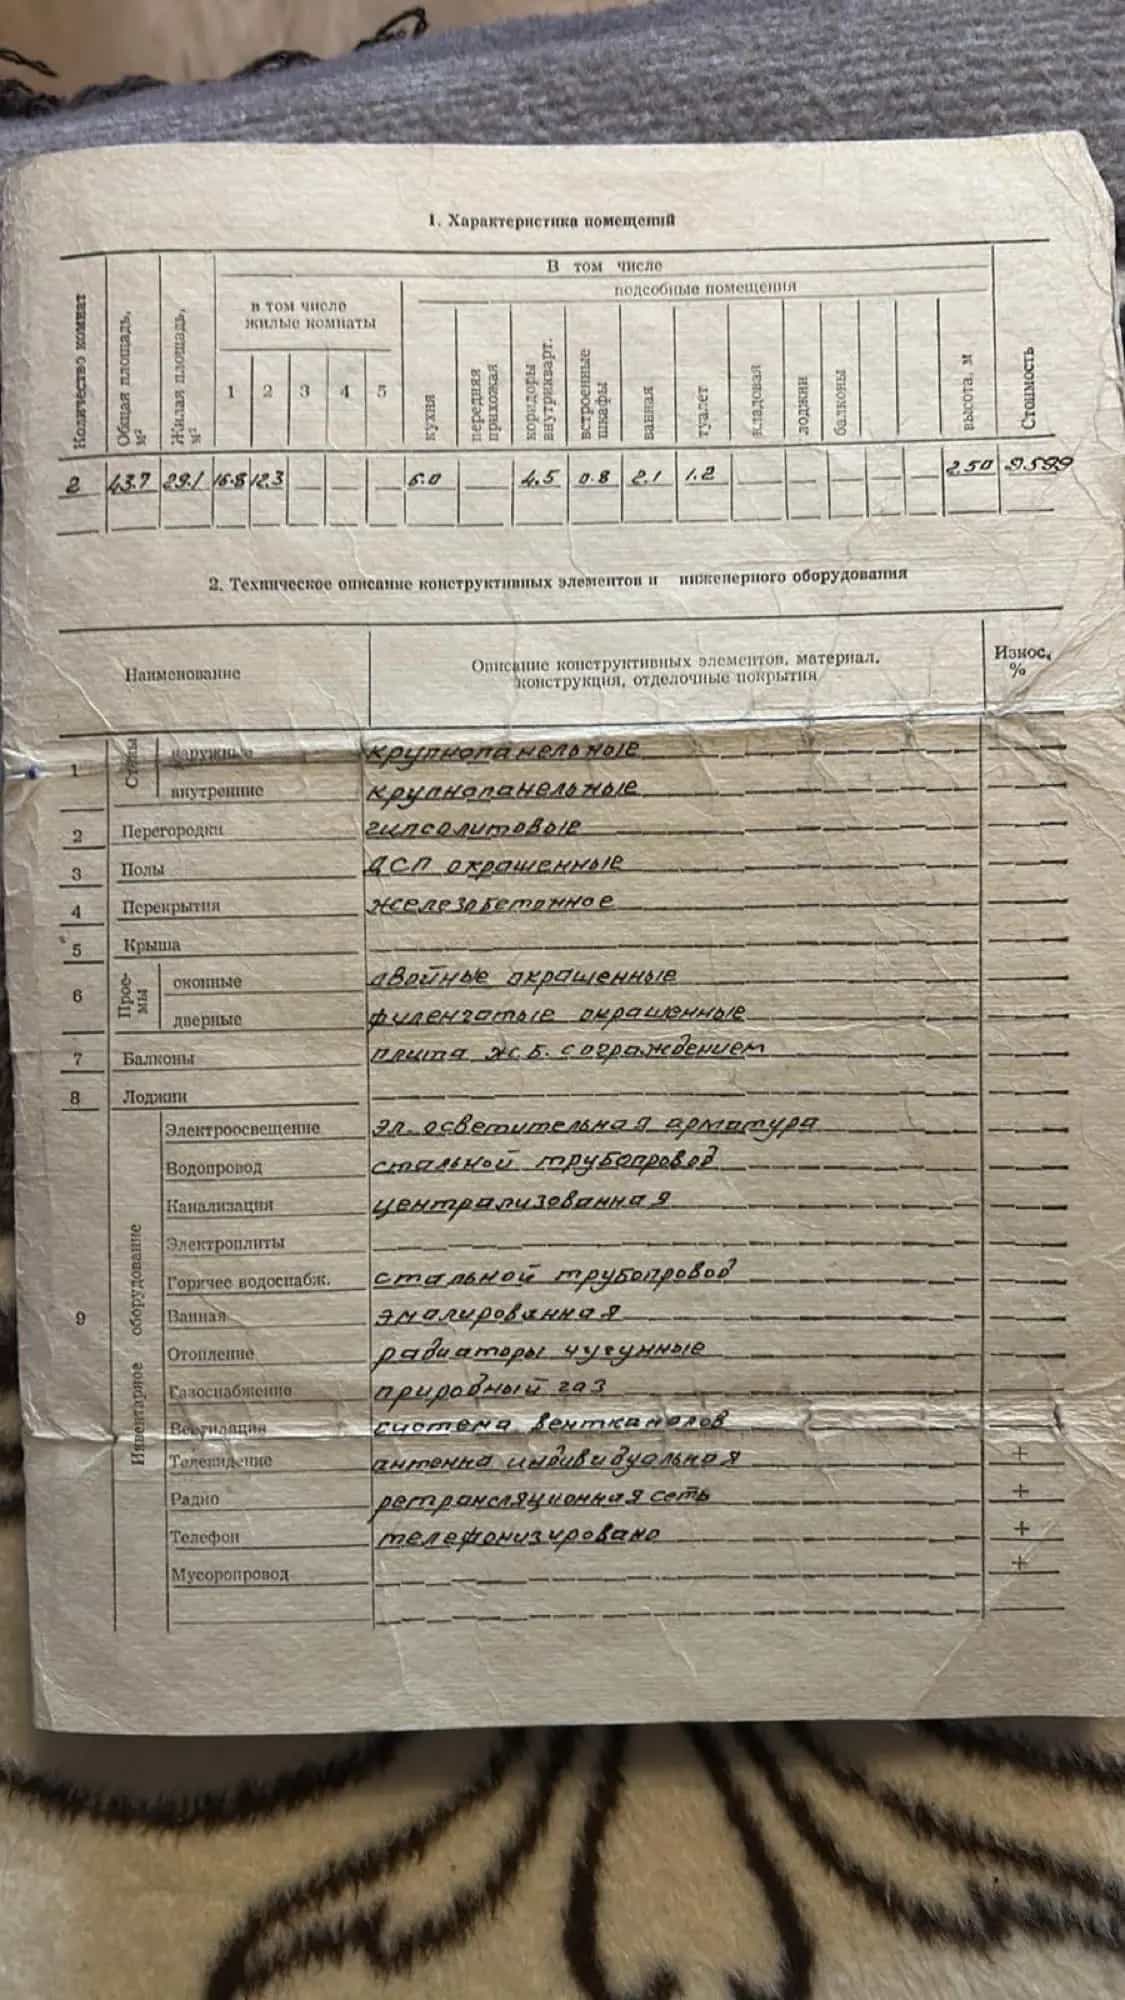 1. Характеристика помещений
Количество комнат
Общая площадь, м²
Жилая площадь, м²
В том числе
в том числе жилые комнаты
подсобные помещения
1 2 3 4 5
кухня
передняя прихожая
коридоры внутрикварт.
встроенные шкафы
ванная
туалет
кладовая
лоджии
балконы
высота, м
Стоимость
2 43.7 29.1 16.8 12.3 — 6.0 — 4.5 0.8 2.1 1.2 — — — — — 2.50 9.599
2. Техническое описание конструктивных элементов и инженерного оборудования
Наименование
Описание конструктивных элементов, материал, конструкция, отделочные покрытия
Износ, %
1 Стены наружные крупнопанельные
внутренние крупнопанельные
2 Перегородки гипсолитовые
3 Полы ДСП окрашенные
4 Перекрытия железобетонное
5 Крыша
6 Прое-мы оконные двойные окрашенные
дверные филенгатые окрашенные
7 Балконы плита ж.б. с ограждением
8 Лоджии
9 Инвентарное оборудование
Электроосвещение эл. осветительная арматура
Водопровод стальной трубопровод
Канализация централизованная
Электроплиты
Горячее водоснабж. стальной трубопровод
Ванная эмалированная
Отопление радиаторы чугунные
Газоснабжение природный газ
Вентиляция система вентканалов
Телевидение антенна индивидуальная +
Радио ретрансляционная сеть +
Телефон телефонизировано +
Мусоропровод +